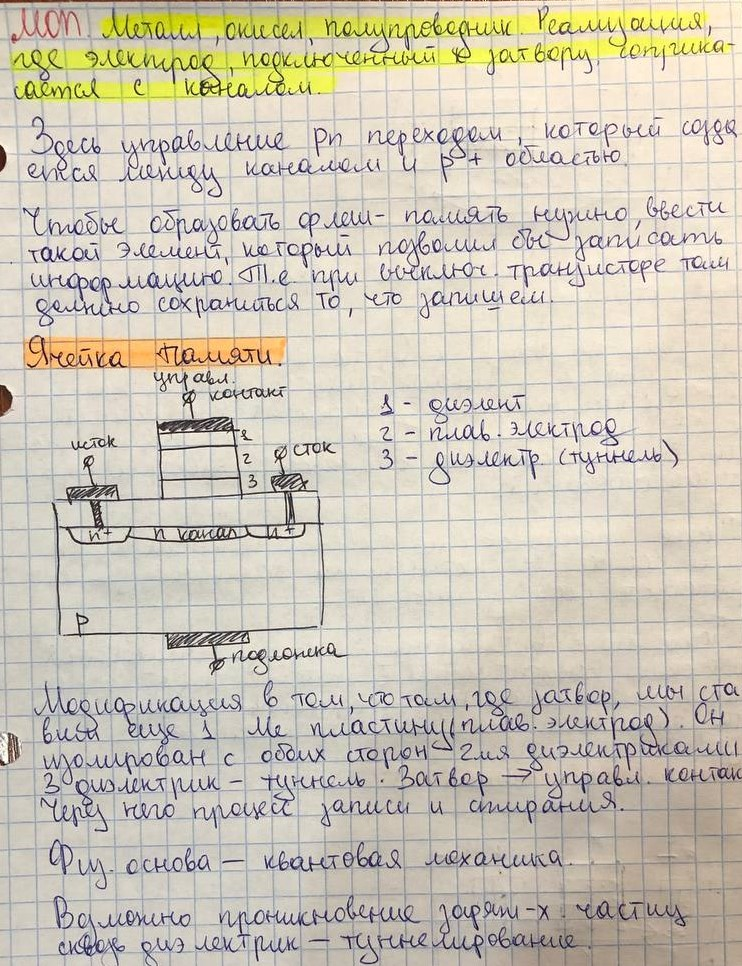 МОП. Металл, окисел, полупроводник. Реализация,
где электрод, подключенный к затвору, соприка-
сается с каналом.
Здесь управление pn переходом, который созда
ется между каналом и p+ областью.
Чтобы образовать флеш-память нужно ввести
такой элемент, который позволил бы записать
информацию. Т.е при выключ. транзисторе там
должно сохраниться то, что запишем.
Ячейка памяти.
управл.
контакт
исток
сток
1
2
3
1 - диэлект
2 - плав. электрод
3 - диэлектр (туннель)
n+
n канал
n+
P
подложка
Модификация в том, что там, где затвор, мы ста
вим еще 1 Ме пластину (плав. электрод). Он
изолирован с обоих сторон 2мя диэлектриками
3 диэлектрик - туннель. Затвор → управл. контак
Через него процесс записи и стирания.
Физ. основа - квантовая механика.
Возможно проникновение заряж-х частиц
сквозь диэлектрик - туннелирование.